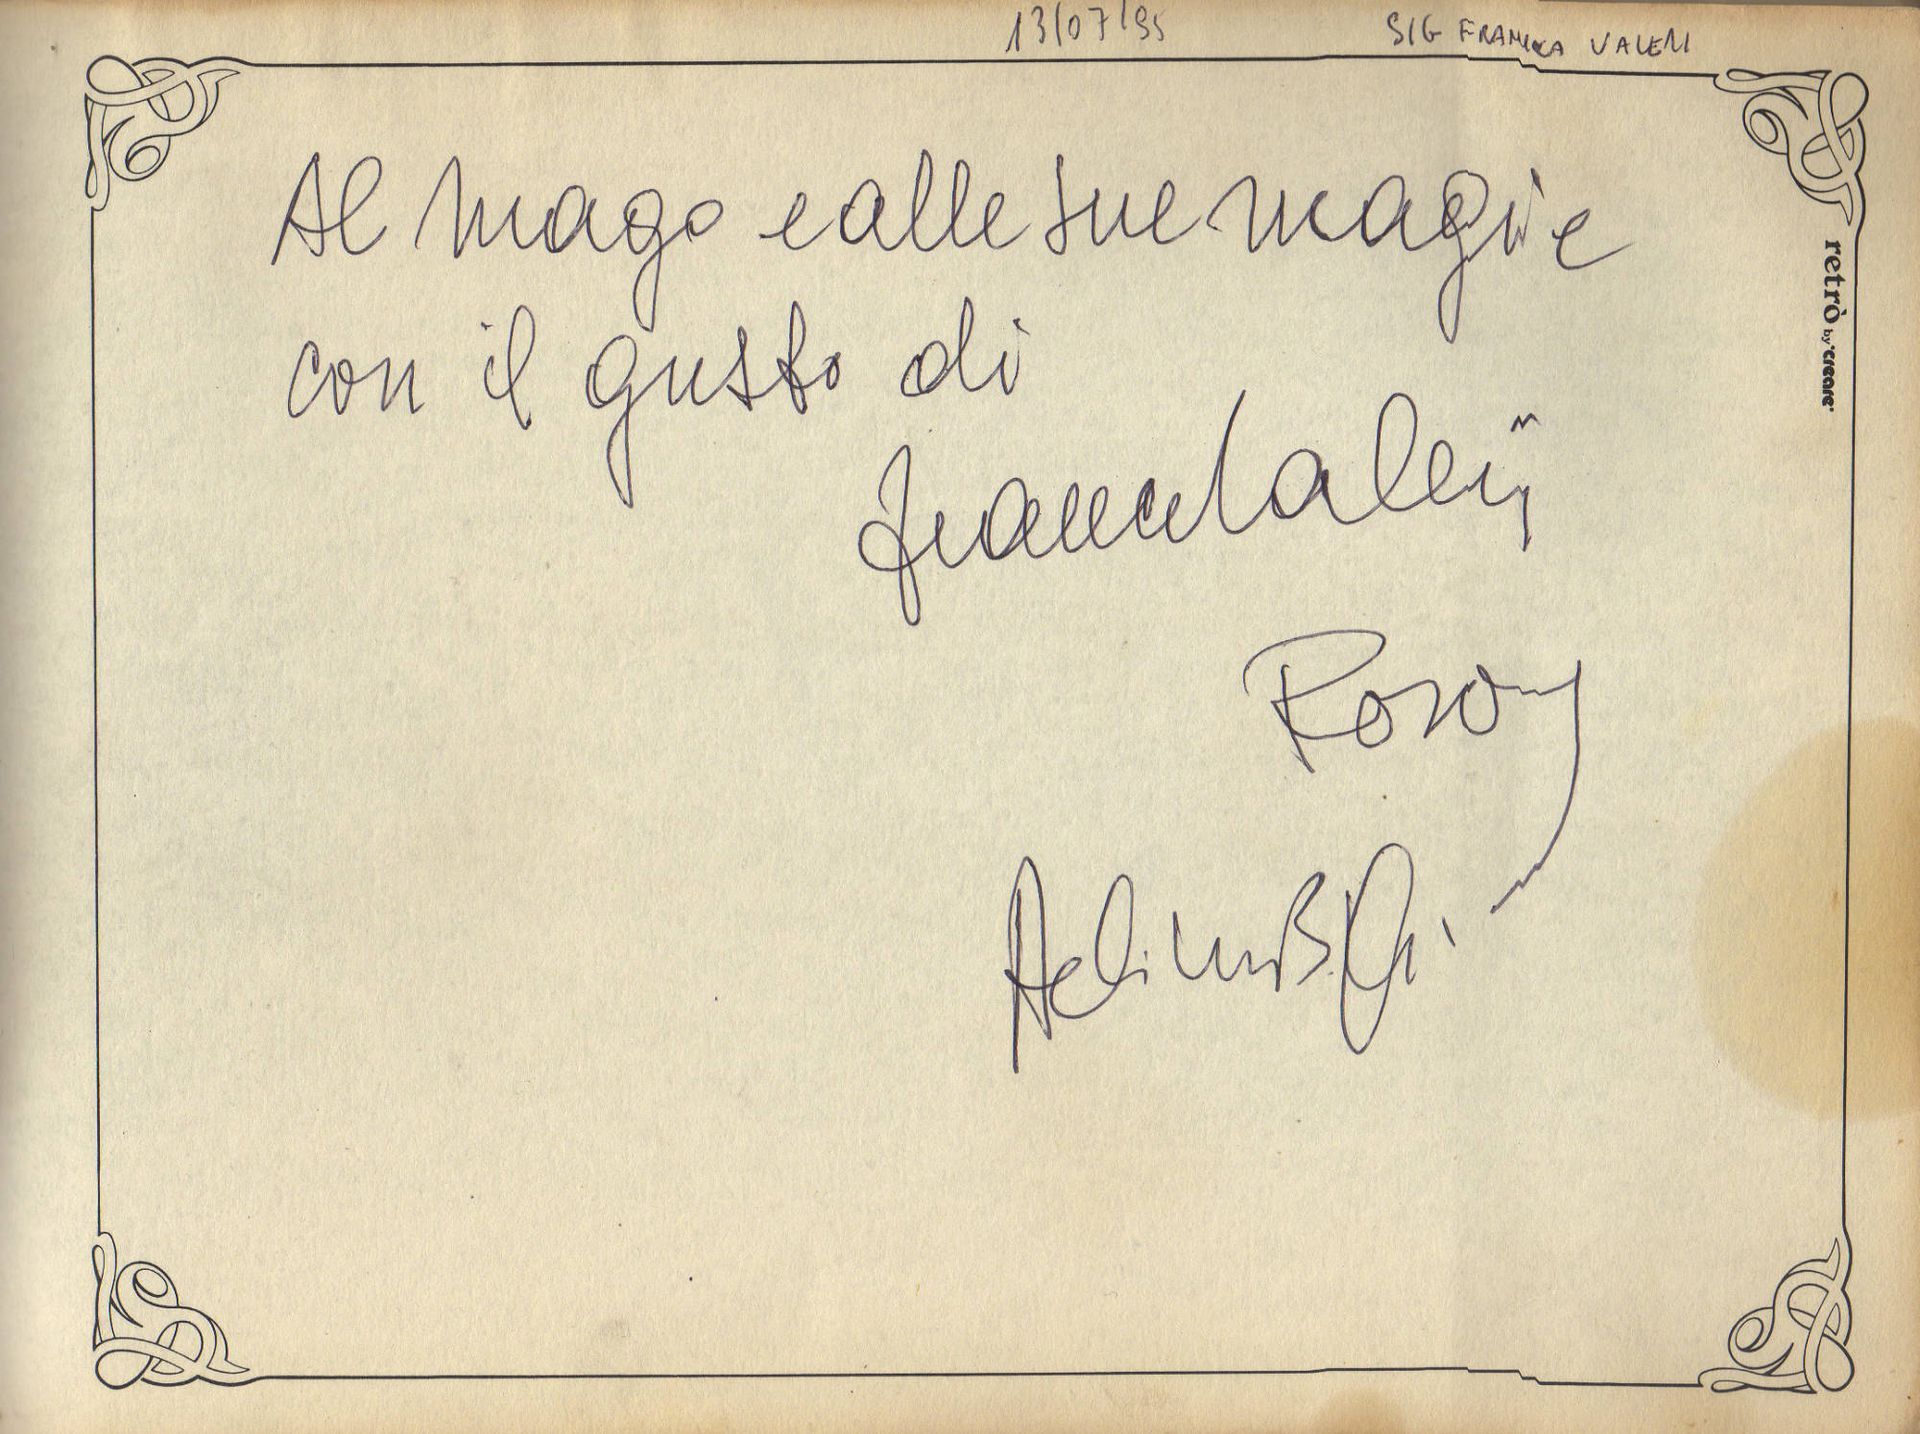 13/07/95 SIG FRANCA VALERI
Al mago e alle sue magie
con il gusto di
Franca Valeri
retrò by "creare"